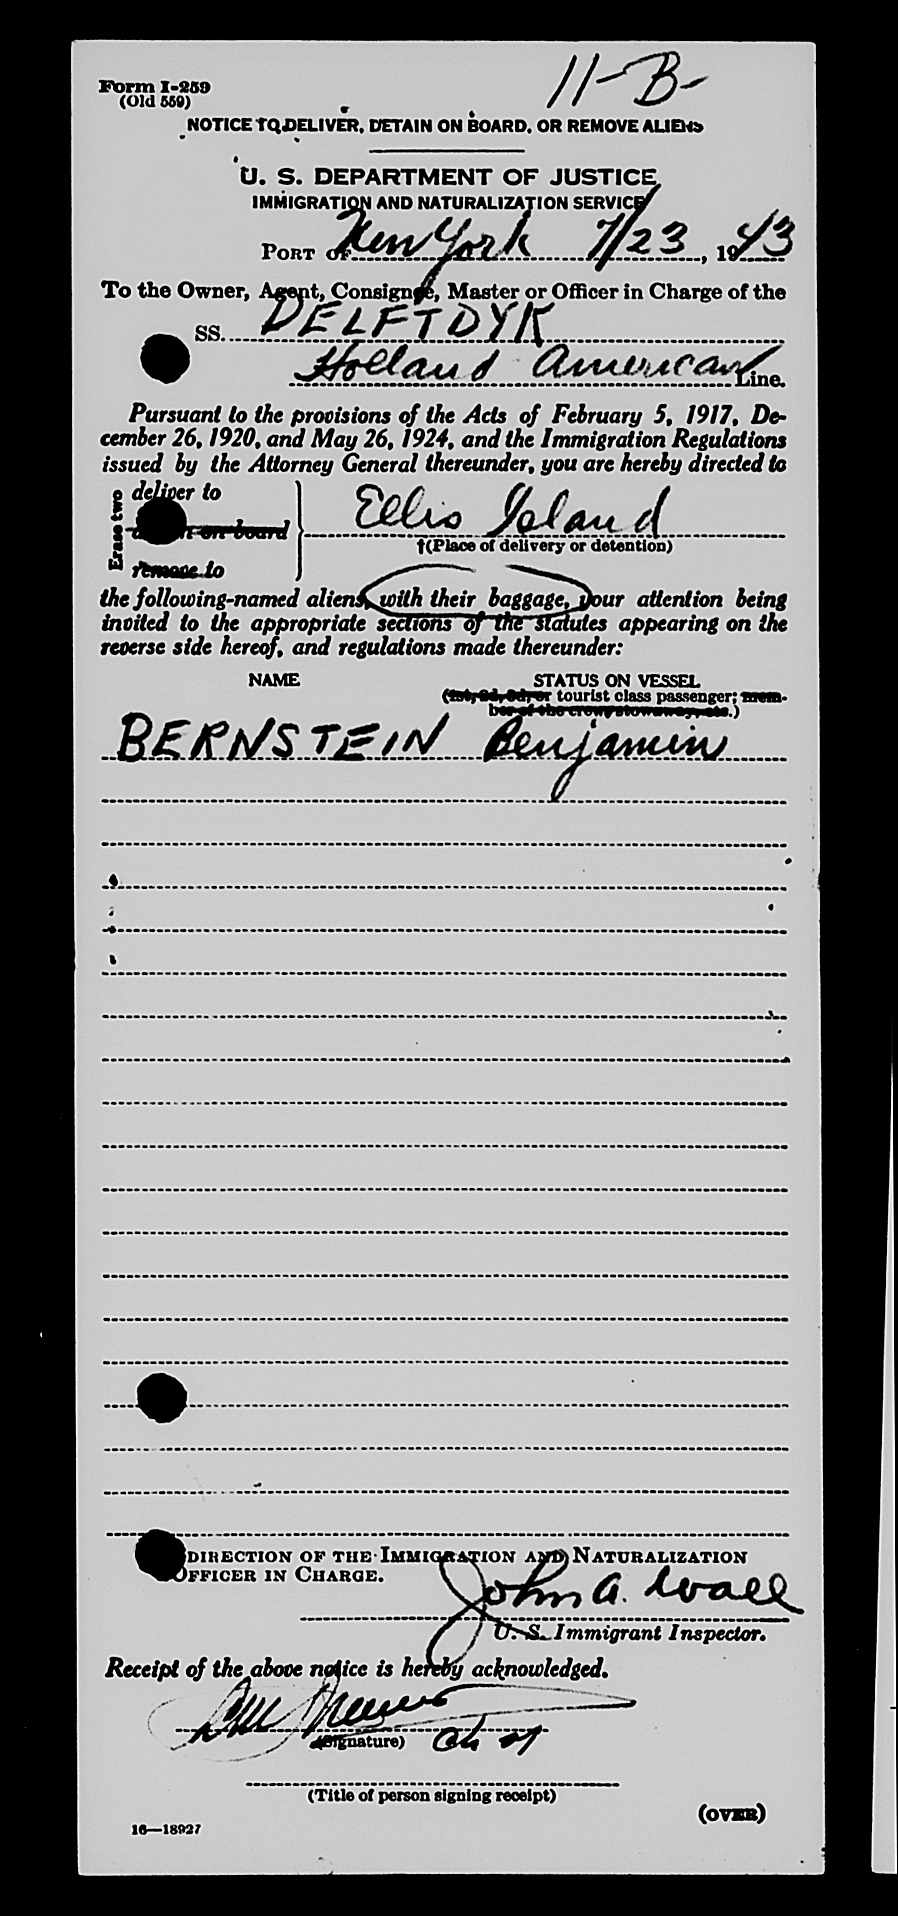 11-B-
Form I-259
(Old 559)
NOTICE TO DELIVER, DETAIN ON BOARD, OR REMOVE ALIENS
U. S. DEPARTMENT OF JUSTICE
IMMIGRATION AND NATURALIZATION SERVICE
PORT OF New York 7/23, 1943
To the Owner, Agent, Consignee, Master or Officer in Charge of the
SS. DELFTDYK
Holland American Line.
Pursuant to the provisions of the Acts of February 5, 1917, De-
cember 26, 1920, and May 26, 1924, and the Immigration Regulations
issued by the Attorney General thereunder, you are hereby directed to
Erase two
deliver to
on board
remove to
Ellis Island
†(Place of delivery or detention)
the following-named aliens, with their baggage, your attention being
invited to the appropriate sections of the statutes appearing on the
reverse side hereof, and regulations made thereunder:
NAME STATUS ON VESSEL
(1st, 2d, 3d, or tourist class passenger; mem-
ber of the crew, stowaway, etc.)
BERNSTEIN Benjamin
DIRECTION OF THE IMMIGRATION AND NATURALIZATION
OFFICER IN CHARGE.
John A. Wall
U. S. Immigrant Inspector.
Receipt of the above notice is hereby acknowledged.
(Signature)
(Title of person signing receipt)
(OVER)
16—18927